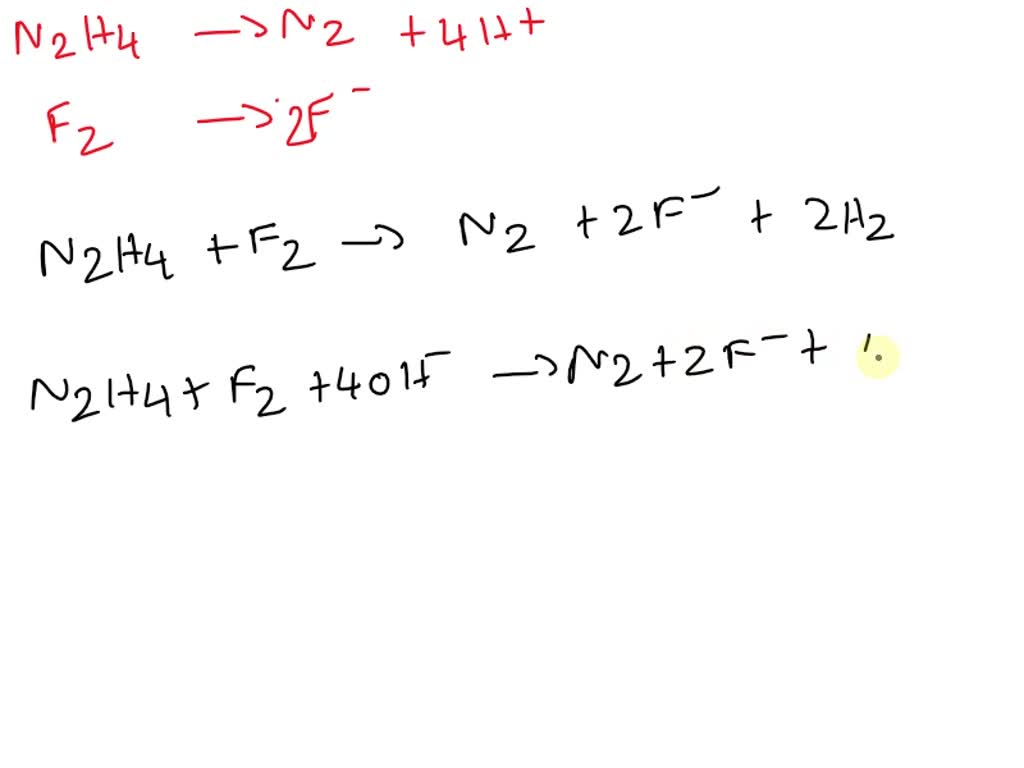 N₂H₄ → N₂ + 4H⁺
F₂ → 2F⁻
N₂H₄ + F₂ → N₂ + 2F⁻ + 2H₂
N₂H₄ + F₂ + 4OH⁻ → N₂ + 2F⁻ +